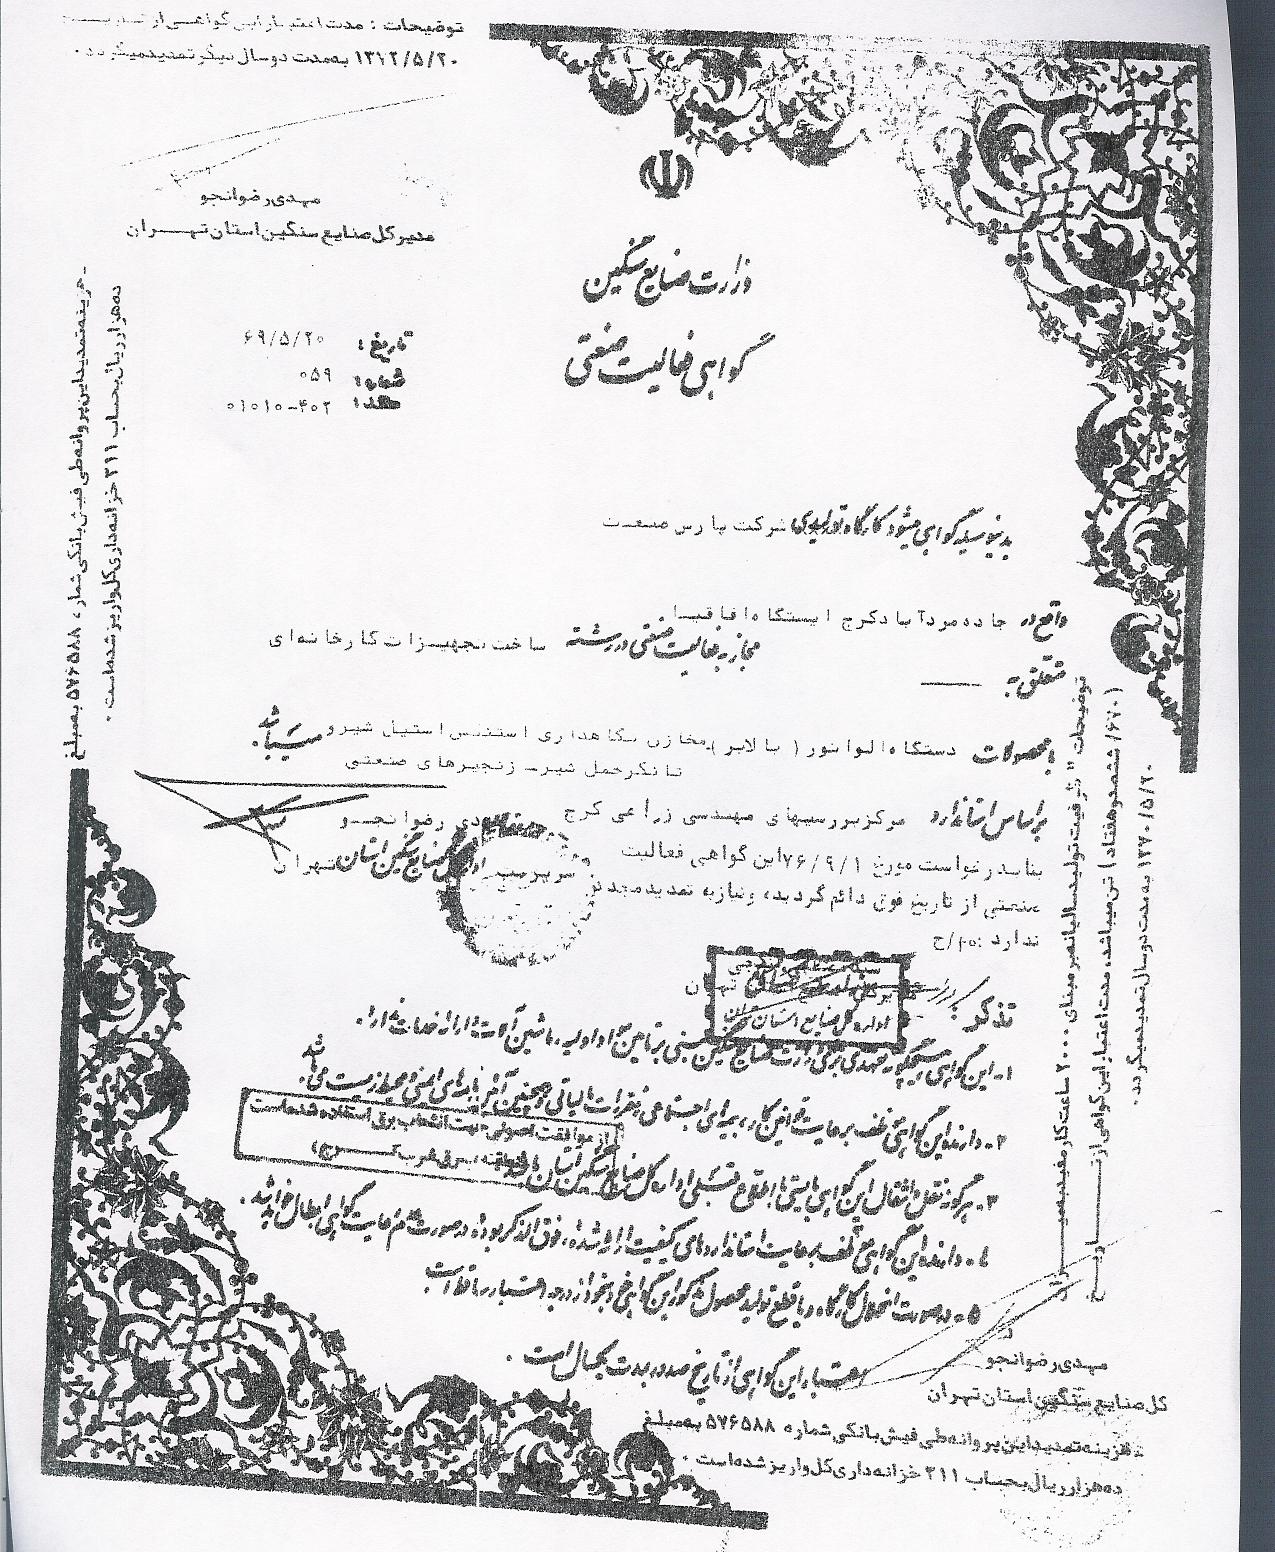 توضیحات : مدت اعتبار این گواهی از تاریخ
۱۳۷۲/۵/۲۰ به مدت دو سال دیگر تمدید میگردد .
مهدی رضوانجو
مدیر کل صنایع سنگین استان تهران
وزارت صنایع سنگین
گواهی فعالیت صنعتی
تاریخ : ۶۹/۵/۲۰
شماره : ۰۵۹
کد : ۴۰۲-۰۱۰۱۰
هزینه تمدید این پروانه طی فیش بانکی شماره ۵۷۶۵۸۸ به مبلغ
ده هزار ریال بحساب ۳۱۱ خزانه داری کل واریز شده است .
بدینوسیله گواهی میشود کارگاه تولیدی شرکت پارس صنعت
واقع در جاده مردآباد کرج ایستگاه آقا قیا
مجاز به فعالیت صنعتی در رشته ساخت تجهیزات کارخانه ای
متعلق به ——
با محصولات دستگاه الواتور ( بالابر ) مخازن نگاهداری استنلس استیل شیر و میباشد
تانکر حمل شیر - زنجیرهای صنعتی
براساس استاندارد مرکز بررسیهای مهندسی زراعی کرج
مهدی رضوانجو
بنا بدرخواست مورخ ۷۶/۹/۱ این گواهی فعالیت
سرپرست اداره کل صنایع سنگین استان تهران
صنعتی از تاریخ فوق دائم گردید، و نیاز به تمدید مجدد
ندارد .
اداره کل صنایع استان تهران
تذکر :
۱- این گواهی هیچگونه تعهدی برای وزارت صنایع سنگین مبنی بر تامین مواد اولیه ، ماشین آلات و ارائه خدمات ندارد .
۲- دارنده این گواهی مکلف برعایت قوانین کار ، بیمه های اجتماعی ، مقررات مالیاتی و همچنین آئین نامه های ایمنی و محیط زیست می باشد
از موافقت اصولی جهت انشعاب برق استفاده شده است
برق غرب کرج )
۳- هرگونه نقل و انتقال این گواهی بایستی با اطلاع قبلی اداره کل صنایع سنگین استان باشد
۴- دارنده این گواهی مکلف برعایت استانداردهای کیفیت ارائه شده ، فوق الذکر بوده و در صورت عدم رعایت گواهی ابطال خواهد شد .
۵- در صورت انحلال کارگاه و یا قطع تولید محصول مذکور این گواهی خودبخود از درجه اعتبار ساقط است
اعتبار این گواهی از تاریخ صدور بمدت یکسال است .
توضیحات " ظرفیت تولید سالیانه بر مبنای ۲۰۰۰ ساعت کار مفید
(۶۷۰/ ششصد و هفتاد ) تن میباشد ، مدت اعتبار این گواهی از تاریخ
۱۳۷۰/۵/۲۰ به مدت دو سال تمدید میگردد .
مهدی رضوانجو
کل صنایع سنگین استان تهران
هزینه تمدید این پروانه طی فیش بانکی شماره ۵۷۶۵۸۸ به مبلغ
ده هزار ریال بحساب ۳۱۱ خزانه داری کل واریز شده است .